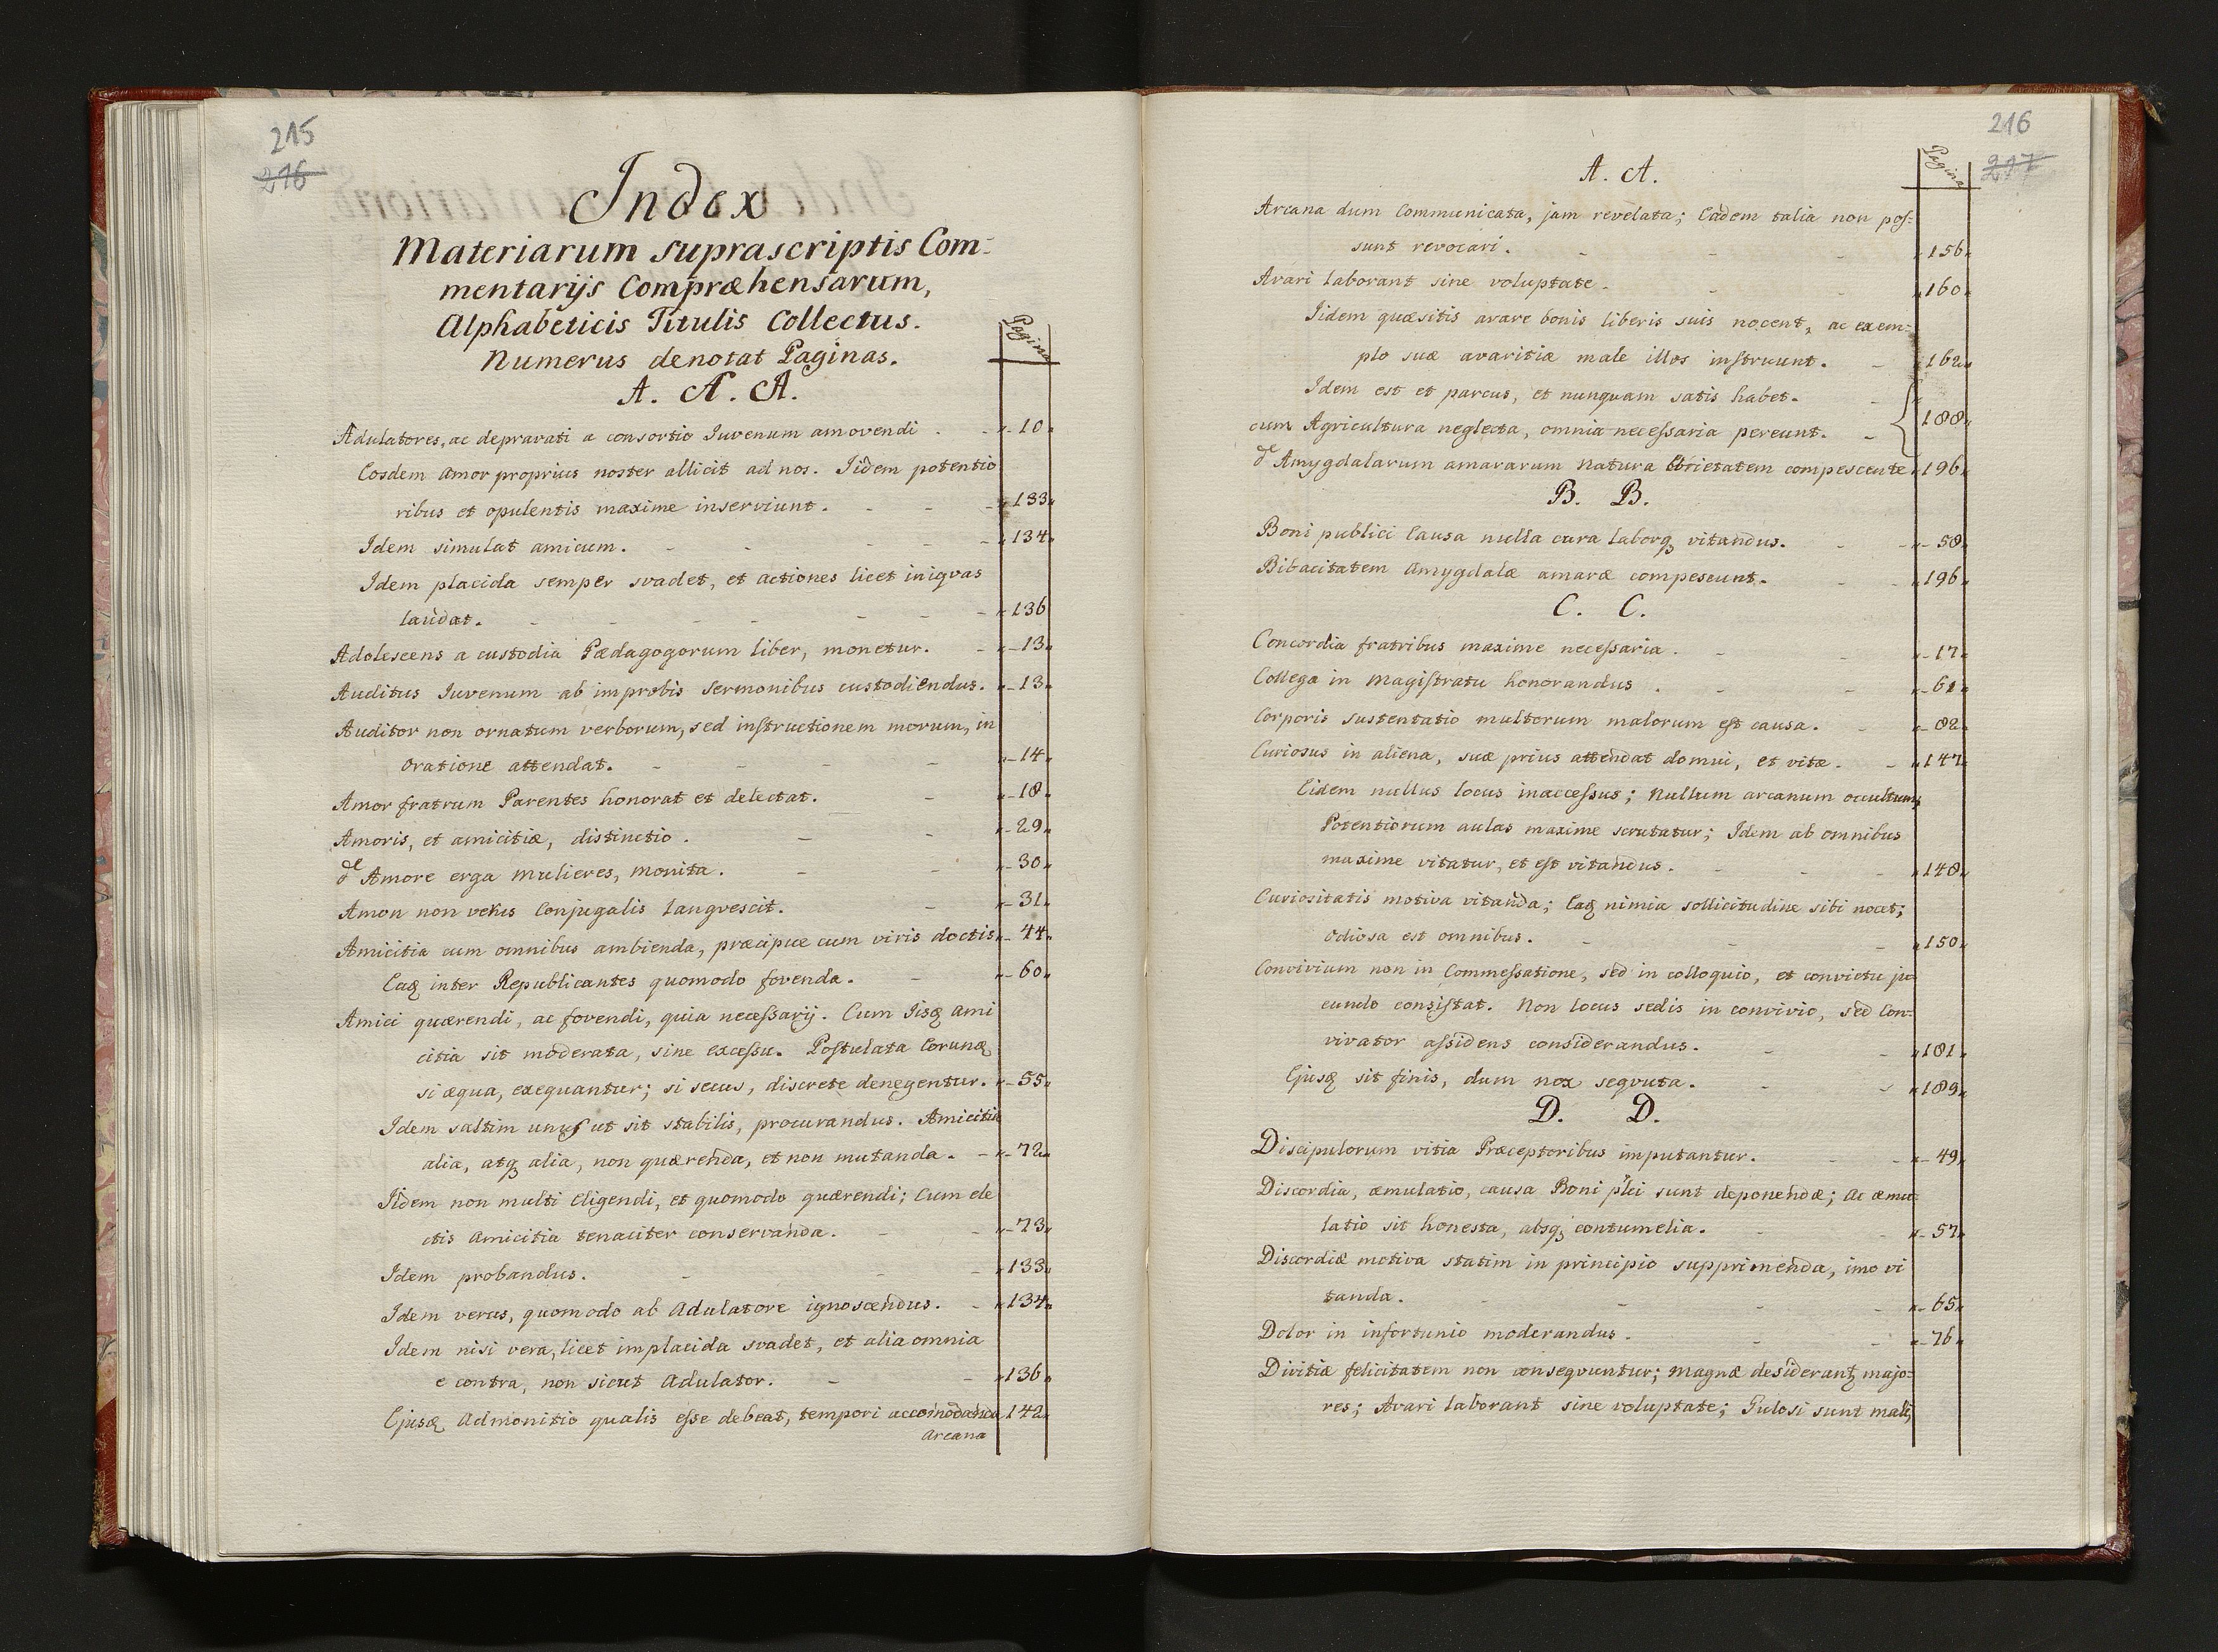 215
216
Index
Materiarum suprascriptis Com-
mentarijs Compræhensarum,
Alphabeticis Titulis Collectus.
Numerus denotat Paginas.
Pagina
A. A. A.
Adulatores, ac depravati a consortio Iuvenum amovendi . - 10
Eosdem Amor proprius noster allicit ad nos. Iidem potentio
ribus et opulentis maxime inserviunt. - - - 133
Idem simulat amicum. - - - - 134
Idem placida semper svadet, et actiones licet iniqvas
laudat. - - - - - - 136
Adolescens a custodia Pædagogorum liber, monetur. - 13
Auditus Iuvenum ab improbis sermonibus custodiendus. - 13
Auditor non ornatum verborum, sed instructionem morum, in
oratione attendat. - - - - 14
Amor fratrum Parentes honorat et delectat. - 18
Amoris, et amicitiæ, distinctio. - - 29
de Amore erga mulieres, monita. - - 30
Amon non verus Conjugalis langvescit. - 31
Amicitia cum omnibus ambienda, præcipue cum viris doctis - 44
Eaq inter Republicantes quomodo fovenda. - 60
Amici quærendi, ac fovendi, quia necessarij. Cum Iisq ami
citia sit moderata, sine excessu. Postulata Eorunq
si æqua, exequantur; si secus, discrete denegentur. - 55
Idem saltim unus ut sit stabilis, procurandus. Amicitia
alia, atq alia, non quærenda, et non mutanda. - 72
Iidem non multi Eligendi, et quomodo quærendi; Cum ele
ctis Amicitia tenaciter conservanda. - - 73
Idem probandus. - - - 133
Idem verus, quomodo ab Adulatore ignoscendus. - 134
Idem nisi vera, licet implacida svadet, et alia omnia
e contra, non sicut Adulator. - - 136
Ejusq Admonitio qualis esse debeat, tempori accomodanda 142
Arcana
216
217
Pagina
A. A.
Arcana dum Communicata, jam revelata; Eadem talia non pos-
sunt revocari. - - - 156
Avari laborant sine voluptate. - - 160
Iidem quæsitis avare bonis liberis suis nocent, ac exem-
plo suæ avaritiæ male illos instruunt. - 162
Idem est et parcus, et nunquam satis habet. -
cum Agricultura neglecta, omnia necessaria pereunt. - 188
de Amygdalarum amararum natura Ebrietatem compescente 196
B. B.
Boni publici Causa nulla cura laborq vitandus. - - 58
Bibacitatem Amygdalæ amaræ compescunt. - - 196
C. C.
Concordia fratribus maxime necessaria. - - 17
Collega in Magistratu honorandus. - - 61
Corporis sustentatio multorum malorum est causa. - 82
Curiosus in aliena, suæ prius attendat domui, et vitæ. - 147
Eidem nullus locus inaccessus; Nullum arcanum occultum,
Potentiorum aulas maxime scrutatur; Idem ab omnibus
maxime vitatur, et est vitandus. - - - 148
Curiositatis motiva vitanda; Eaq nimia sollicitudine sibi nocet;
odiosa est omnibus. - - - 150
Convivium non in Commessatione, sed in colloquio, et convictu ju-
cundo consistat. Non locus sedis in convivio, sed Con-
vivator assidens considerandus. - - 181
Ejusq sit finis, dum nox seqvuta. - - 189
D. D.
Discipulorum vitia Præceptoribus imputantur. - - 49
Discordia, æmulatio, causa Boni plci sunt deponendæ; Ac æmu-
latio sit honesta, absq contumelia. - - 57
Discordiæ motiva statim in principio supprimenda, imo vi
tanda. - - - - 65
Dolor in infortunio moderandus. - - 76
Divitiæ felicitatem non conseqvuntur; Magnæ desiderant majo-
res; Avari laborant sine voluptate; Gulosi sunt mali,